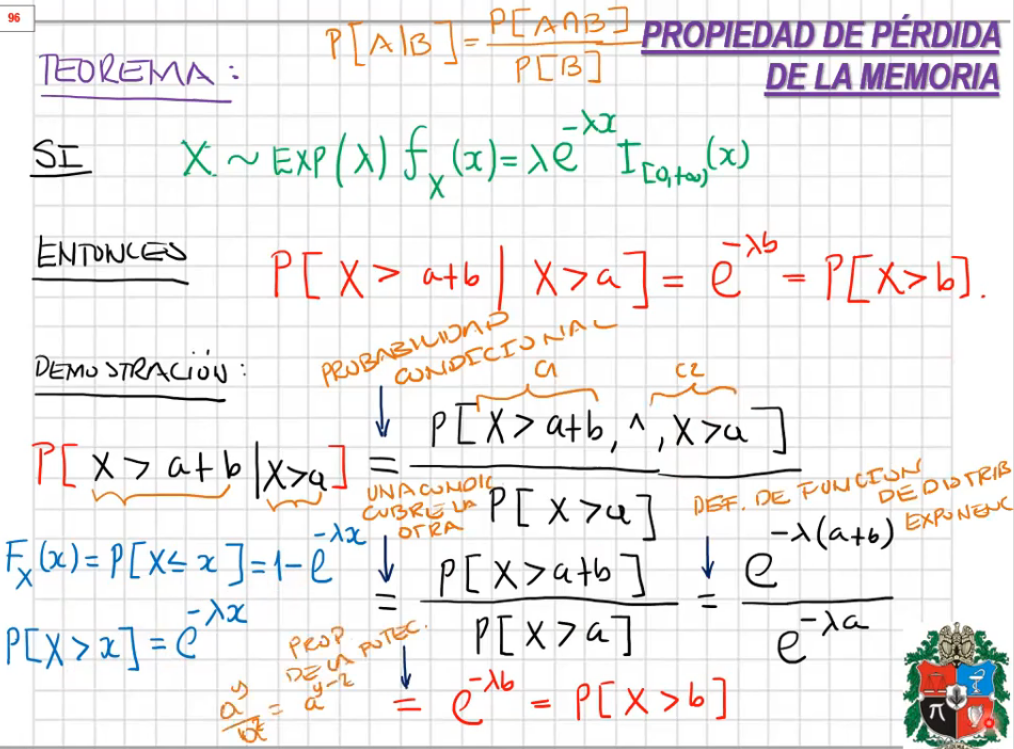 96
P[A|B] = P[A∩B] / P[B]
PROPIEDAD DE PÉRDIDA
DE LA MEMORIA
TEOREMA:
SI X ~ EXP(λ) f_X(x) = λe^{-λx} I_{[0,+∞)}(x)
ENTONCES P[X > a+b | X > a] = e^{-λb} = P[X > b].
DEMOSTRACIÓN:
PROBABILIDAD
CONDICIONAL
C1 C2
P[X > a+b | X > a] = P[X > a+b, ^, X > a] / P[X > a]
UNA CONDIC
CUBRE LA
OTRA
DEF. DE FUNCION
DE DISTRIB
EXPONENC
F_X(x) = P[X ≤ x] = 1 - e^{-λx}
= P[X > a+b] / P[X > a] = e^{-λ(a+b)} / e^{-λa}
P[X > x] = e^{-λx}
PROP
DE LA POTEC.
= a^{y-z}
= e^{-λb} = P[X > b]
π